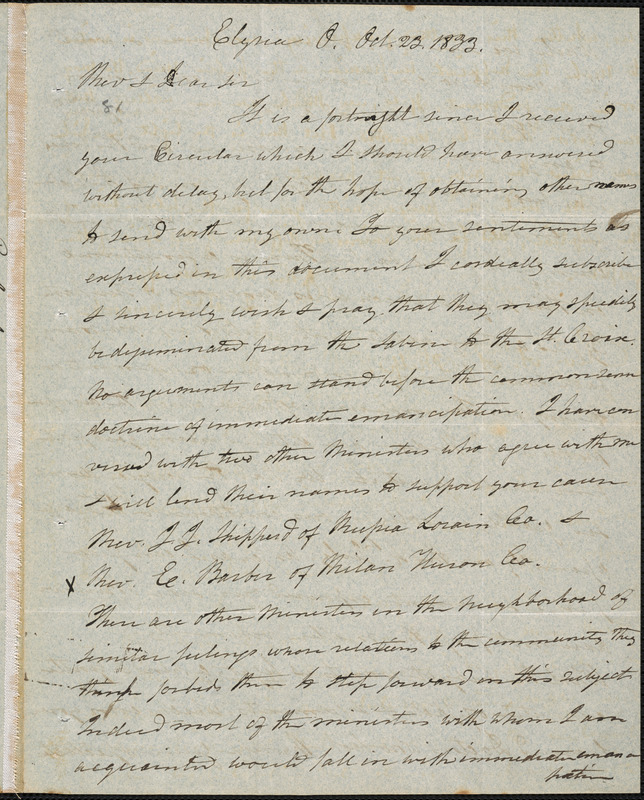 Elyria O. Oct. 23. 1833.
Rev & Dear Sir
81
It is a fortnight since I received
your Circular which I should have answered
without delay, but for the hope of obtaining other names
to send with my own. To your sentiments as
expressed in this document I cordially subscribe
& sincerely wish & pray that they may speedily
be disseminated from the Sabine to the St. Croix.
No arguments can stand before the common sense
doctrine of immediate emancipation. I have con
versed with two other Ministers who agree with me
& will lend their names to support your cause
Rev. J. J. Shipperd of Russia Lorain Co. &
X Rev. E. Barber of Milan Huron Co.
There are other Ministers in the neighborhood of
similar feelings whose relations to the community they
think forbids them to step forward in this subject
Indeed most of the ministers with whom I am
acquainted would fall in with immediate emanci
pation